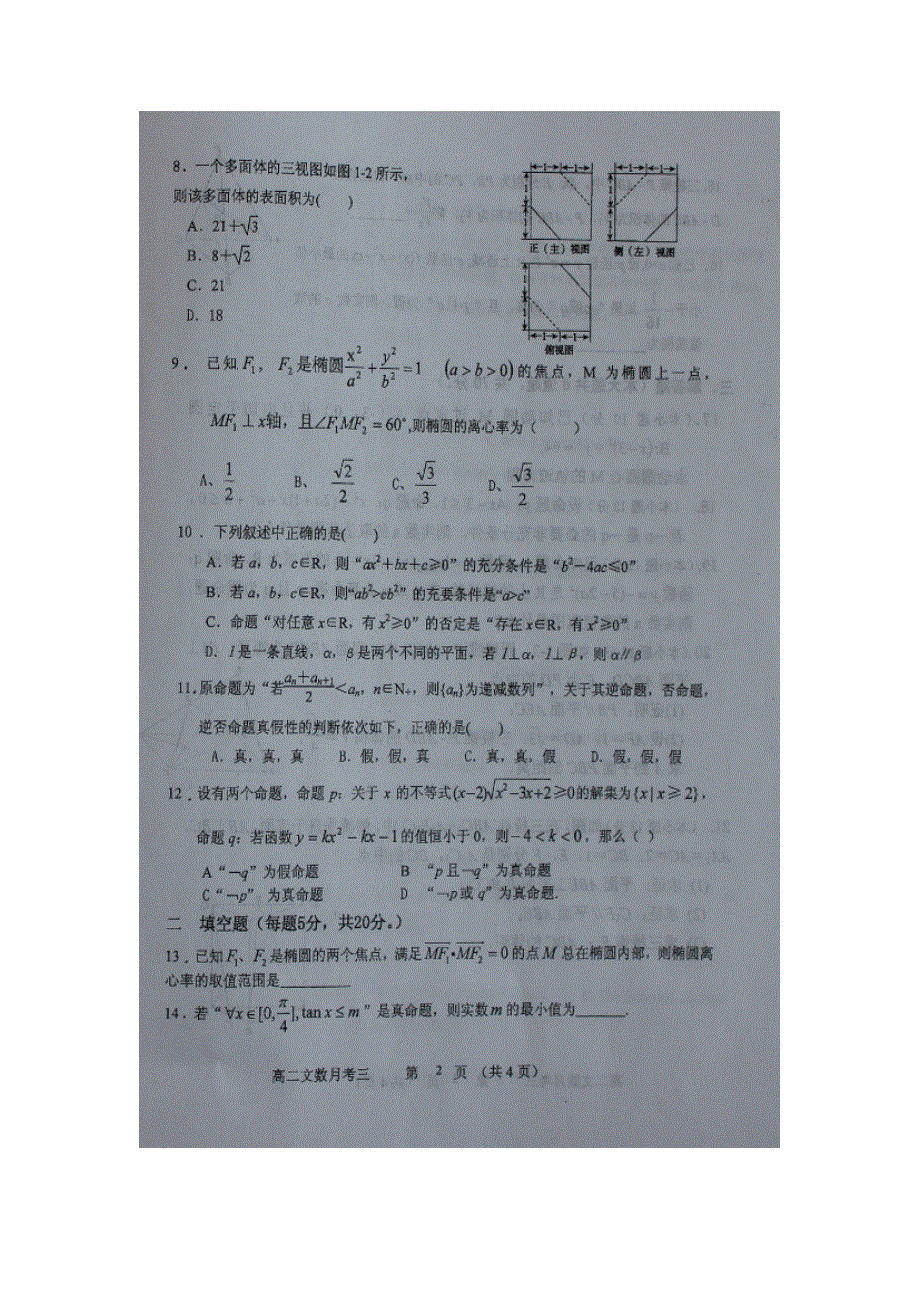 8. 一个多面体的三视图如图1-2所示,
则该多面体的表面积为(    )
A. 21+√3
B. 8+√2
C. 21
D. 18
正(主)视图 侧(左)视图
俯视图
9. 已知F₁, F₂是椭圆x²/a²+y²/b²=1 (a>b>0)的焦点, M 为椭圆上一点,
MF₁⊥x轴, 且∠F₁MF₂=60°,则椭圆的离心率为(    )
A、1/2 B、√2/2 C、√3/3 D、√3/2
10. 下列叙述中正确的是(    )
A. 若a, b, c∈R, 则“ax²+bx+c≥0”的充分条件是“b²-4ac≤0”
B. 若a, b, c∈R, 则“ab²>cb²”的充要条件是“a>c”
C. 命题“对任意x∈R, 有x²≥0”的否定是“存在x∈R, 有x²≥0”
D. l是一条直线, α, β是两个不同的平面, 若l⊥α, l⊥β, 则α∥β
11.原命题为“若(aₙ+aₙ₊₁)/2<aₙ, n∈N₊, 则{aₙ}为递减数列”, 关于其逆命题, 否命题,
逆否命题真假性的判断依次如下, 正确的是(    )
A. 真, 真, 真 B. 假, 假, 真 C. 真, 真, 假 D. 假, 假, 假
12. 设有两个命题, 命题p: 关于x的不等式(x-2)√(x²-3x+2)≥0的解集为{x|x≥2},
命题q: 若函数y=kx²-kx-1的值恒小于0, 则-4<k<0, 那么( )
A“¬q”为假命题 B “p且¬q”为真命题
C“¬p”为真命题 D “¬p或q”为真命题.
二 填空题(每题5分,共20分。)
13. 已知F₁、F₂是椭圆的两个焦点, 满足MF₁•MF₂=0的点M总在椭圆内部, 则椭圆离
心率的取值范围是________
14. 若“∀x∈[0,π/4],tan x≤m”是真命题, 则实数m的最小值为______.
高二文数月考三 第 2 页 (共4页)